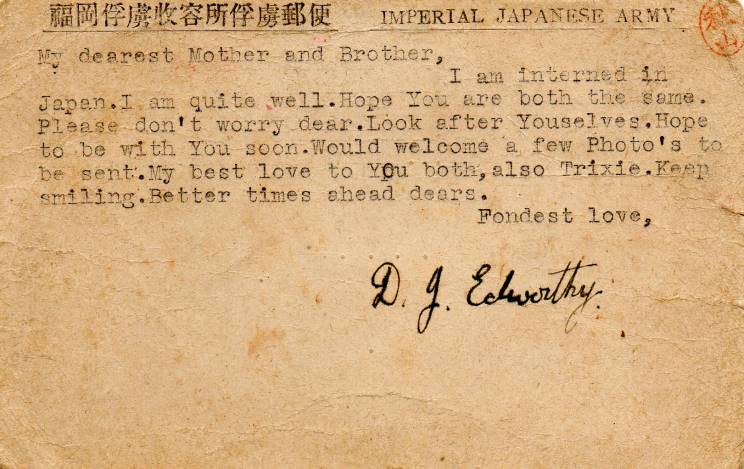 福岡俘虜收容所俘虜郵便 IMPERIAL JAPANESE ARMY
My dearest Mother and Brother,
I am interned in
Japan.I am quite well.Hope You are both the same.
Please don't worry dear.Look after Youselves.Hope
to be with You soon.Would welcome a few Photo's to
be sent.My best love to You both,also Trixie.Keep
smiling.Better times ahead dears.
Fondest love,
D. J. Edworthy.